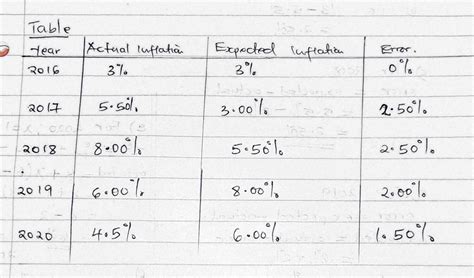 Table
Year Actual Inflation Expected Inflation Error.
2016 3% 3% 0%
2017 5.50% 3.00% 2.50%
2018 8.00% 5.50% 2.50%
2019 6.00% 8.00% 2.00%
2020 4.5% 6.00% 1.50%